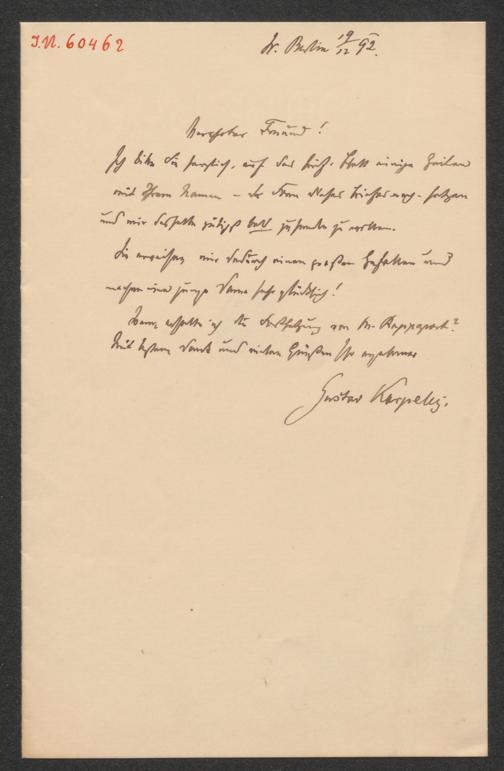 J.N. 60462
W. Berlin 19/12 92.
Verehrter Freund!
Ich bitte Sie herzlich, auf das Blatt einige Zeilen
mit Ihrem Namen –
und mir dasselbe gütigst bald zusenden zu wollen.
Sie erweisen mir dadurch einen großen Gefallen und
machen eine junge Dame sehr glücklich!
Wann erhalte ich die Fortsetzung von Rappaport?
Mit bestem Dank und vielen Grüßen Ihr ergebener
Gustav Karpeles.